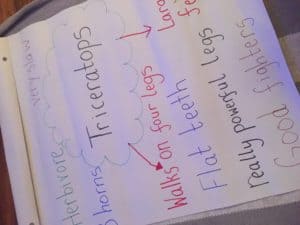 very slow
Herbivore
3 horns
Triceratops
Walks on four legs
Flat teeth
really powerful legs
Good fighters